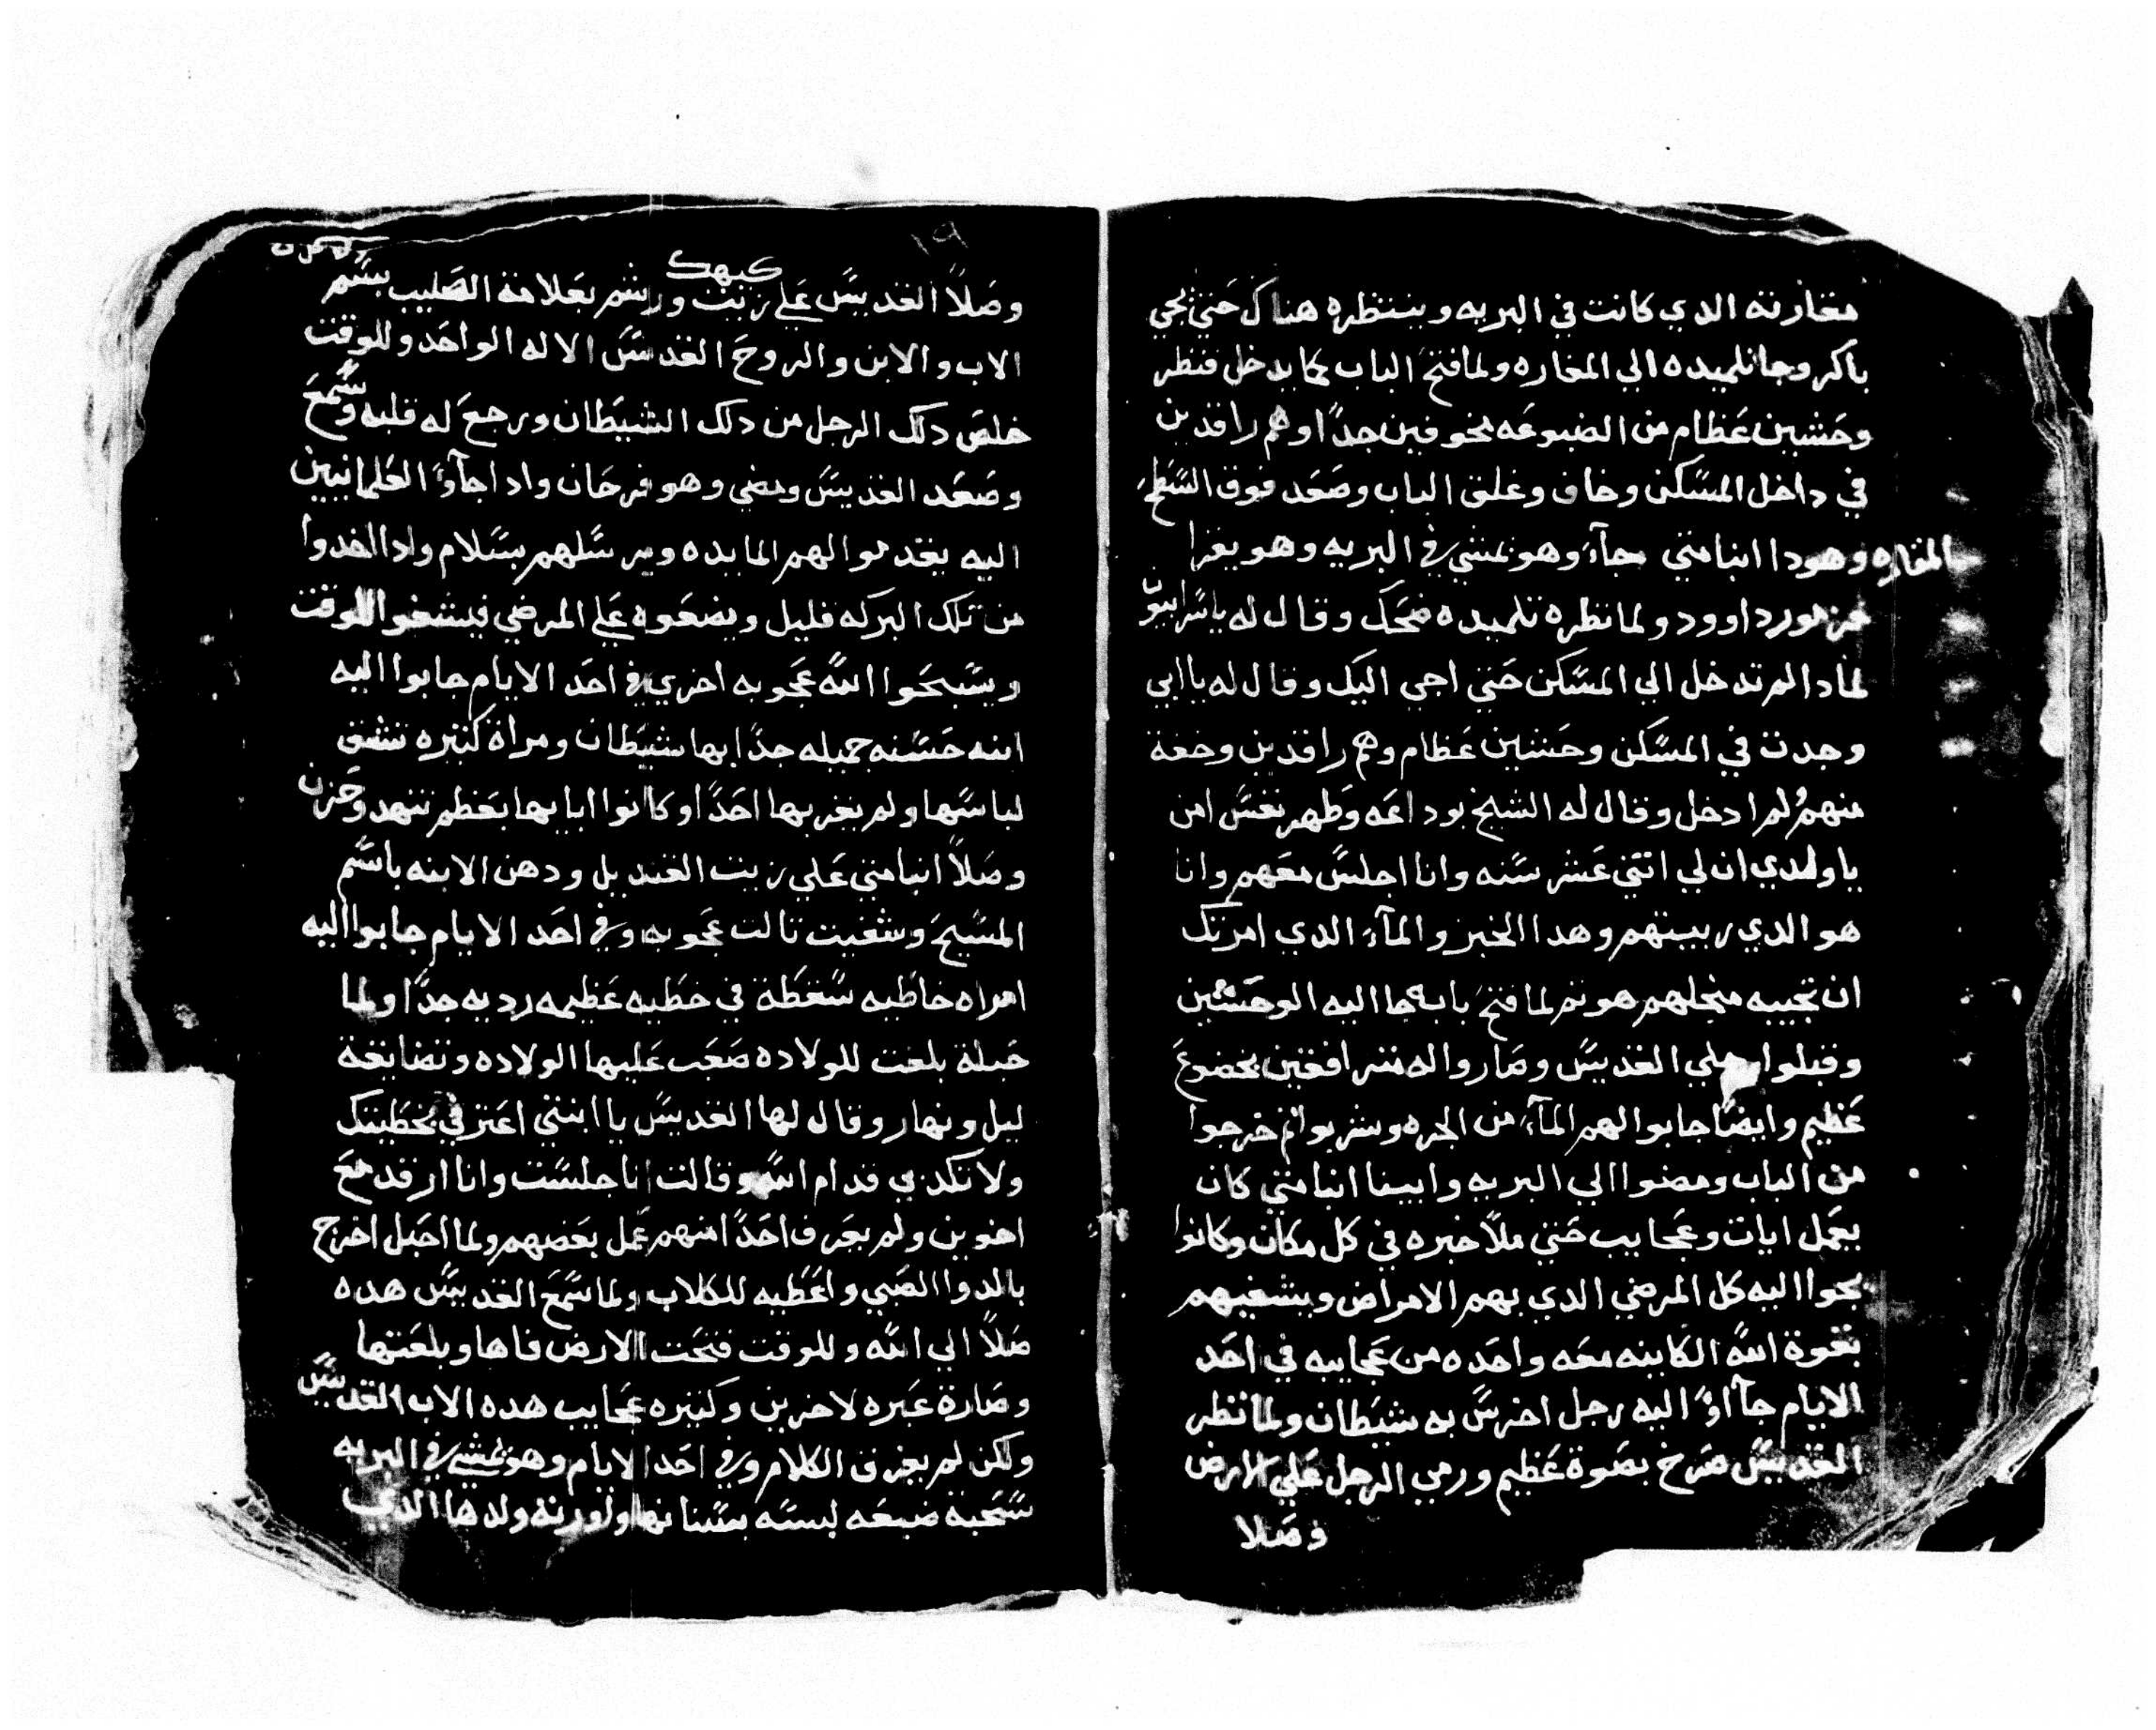 مغارته الدي كانت في البريه وينتظره هناك حتي يجي
باكر وجا تلميده الي المغاره ولما فتح الباب كما يدخل فنظر
وحشين عظام من الضبوعه مخوفين جدا وهم راقدين
في داخل المسكن وخاف وغلق الباب وصعد فوق السطح
المغاره وهودا انبا متي جآء وهو يمشي في البريه وهو يقرا
مزمور داوود ولما نظره تلميده ضحك وقال له يا
لمادا لم تدخل الي المسكن حتي اجي اليك وقال له يا ابي
وجدت في المسكن وحشين عظام وهم راقدين وخفة
منهم ولم ادخل وقال له الشيخ بوداعه وطهر نفس امن
يا ولدي ان لي اتني عشر سنه وانا اجلس معهم وانا
هو الدي ربيتهم وهدا الخبز والمآء الدي امرتك
ان تجيبه منجلهم هو تم لما فتح بابه جا اليه الوحشين
وقبلوا رجلي القديس وصاروا له مترافقين بخضوع
عظيم وايضا جابوا لهم المآء من الجره وشربوا تم خرجوا
من الباب ومضوا الي البريه وايضا انبا متي كان
يعمل ايات وعجايب حتي ملا خبره في كل مكان وكانوا
يجوا اليه كل المرضي الدي بهم الامراض ويشفيهم
بقوة الله الكاينه معه واحده من عجايبه في احد
الايام جآاوا اليه رجل اخرس به شيطان ولما نظر
القديس صرخ بصوة عظيم ورمي الرجل علي الارض
وصلا
كيهك
١٩
وصلا القديس علي زيت ورشم بعلامة الصليب بسم
الاب والابن والروح القدس الاله الواحد وللوقت
خلص دلك الرجل من دلك الشيطان ورجع له قلبه وسمع
وصعد القديس ومضي وهو فرحان وادا جآوا العلمانيين
اليه يقدموا لهم المايده ويرسلهم بسلام وادا اخدوا
من تلك البركه قليل ويضعوه علي المرضي فيشفوا للوقت
ويسبحوا الله عجوبه اخري في احد الايام جابوا اليه
ابنه حسنه جميله جدا بها شيطان ومراة كتيره تشق
لباسها ولم يقربها احدا وكانوا ابايها بعظم تنهد وحزن
وصلا انبا متي علي زيت القنديل ودهن الابنه باسم
المسيح وشفيت تالت عجوبه وفي احد الايام جابوا اليه
امراه خاطيه سقطة في خطيه عظيمه رديه جدا ولما
حبلة بلغت للولاده صعب عليها الولاده وتضايقة
ليل ونهار وقال لها القديس يا ابنتي اعترفي بخطيتك
ولا تكدبي قدام الله وقالت انا جلست وانا ارقد مع
اخوين ولم يعرف احدا منهم عمل بعضهم ولما احبل اخرج
بالدوا الصبي واعطيه للكلاب ولما سمع القديس هده
صلا الي الله وللوقت فتحت الارض فاها وبلعتها
وصارة عبره لاخرين وكتيره عجايب هده الاب القديس
ولكن لم يفرق الكلام وفي احد الايام وهو يمشي في البريه
سحبة ضبعه لبسه بسنانها ولورته ولدها الدي